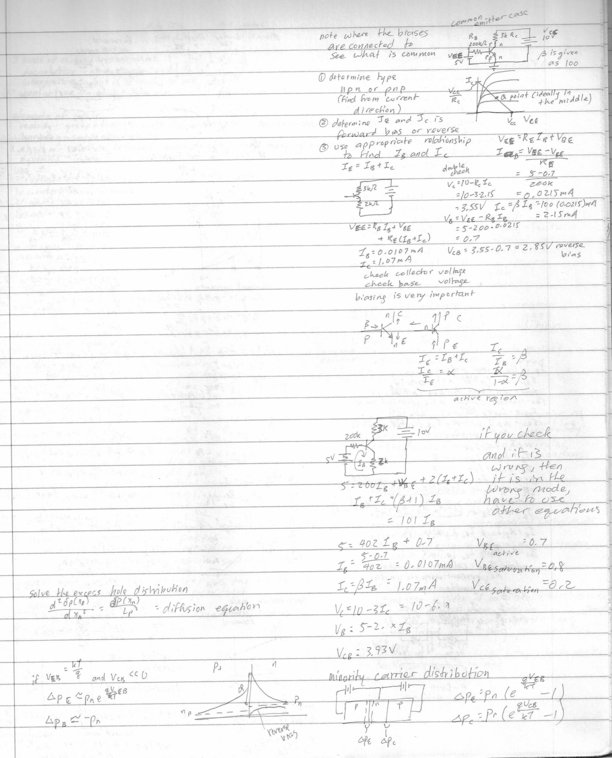 common
emitter case
note where the biases
are connected to
see what is common
RB
200kΩ
3k Rc
n
P
n
VEE
5V
VCC
10V
β is given
as 100
① determine type
npn or pnp
(find from current
direction)
Ic
Vcc
Rc
Q point (ideally in
the middle)
Vcc VCE
② determine JE and Jc is
forward bias or reverse
③ use appropriate relationship
to find IB and Ic
IE = IB + Ic
VEE = RB IB + VBE
IB = VEE - VBE
RB
= 5 - 0.7
200k
= 0.0215mA
Ic = βIB = 100(0.0215)mA
= 2.15mA
double
check
Vc = 10 - Rc Ic
= 10 - 3·2.15
= 3.55V
VB = VEE - RB IB
= 5 - 200·0.0215
= 0.7
VCB = 3.55 - 0.7 = 2.85V reverse
bias
5kΩ
2kΩ
VEE = RB IB + VBE
+ RE(IB + Ic)
IB = 0.0107mA
Ic = 1.07mA
check collector voltage
check base voltage
biasing is very important
B
P
n
C
n
E
P
C
n
P
E
IE = IB + Ic
Ic
IE
= α
Ic
IB
= β
α
1-α
= β
active region
200k
3K
10V
5V
IB
2k
if you check
and if it is
wrong, then
it is in the
wrong mode,
have to use
other equations
5 = 200IB + VBE + 2(IB + Ic)
IB + Ic = (β+1) IB
= 101 IB
5 = 402 IB + 0.7
IB = 5-0.7
402
= 0.0107mA
Ic = βIB = 1.07mA
Vc = 10 - 3Ic = 10 - 6.x
VB = 5 - 2. x IB
VCB = 3.93V
VBE active = 0.7
VBE saturation = 0.8
VCE saturation = 0.2
solve the excess hole distribution
d²δp(xn)
dxn²
= δp(xn)
Lp²
= diffusion equation
if VEB = kT
q
and VCB << 0
ΔpE ≈ pn e qVEB
kT
ΔpB ≈ -pn
n
np
Pn
reverse
bias
minority carrier distribution
P
n
P
ΔpE
Δpc
ΔpE = pn (e qVEB
kT
- 1)
Δpc = pn (e qVCB
kT
- 1)